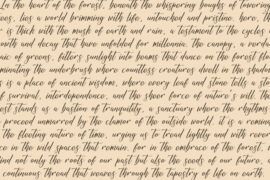 In the heart of the forest, beneath the whispering boughs of towering
lies a world brimming with life, untouched and pristine. here, the
is thick with the musk of earth and rain, a testament to the cycles
wth and decay that have unfolded for millennia. the canopy, a verda
ic of greens, filters sunlight into beams that dance on the forest flo
minating the underbrush where countless creatures dwell in the shadow
is a place of ancient wisdom, where every leaf and stone tells a sto
f survival, interdependence, and the sheer force of nature's will. the
est stands as a bastion of tranquility, a sanctuary where the rhythms
proceed unmarred by the clamor of the outside world. it is a remin
the fleeting nature of time, urging us to tread lightly and with rever
ce in the wild spaces that remain. for in the embrace of the forest,
ind not only the roots of our past but also the seeds of our future, a
continuous thread that weaves through the tapestry of life on earth.